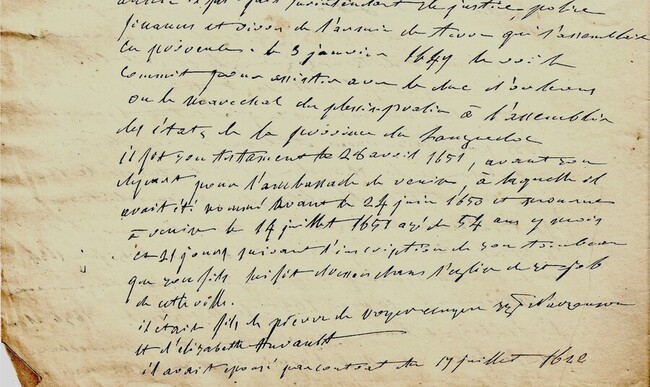 intendant de justice, police
finances et vivres de l'armée de terre qui s'assembloit
en provence. le 3 janvier 1649 le roi l
commit pour assister avec le duc d'orleans
ou le marechal du plessis praslin à l'assemblée
des états de la province du Languedoc
il fit son testament le 28 avril 1651, avant son
départ pour l'ambassade de venise, à laquelle il
avait été nommé avant le 24 juin 1650 et mourut
à venise le 14 juillet 1651 agé de 54 ans 7 mois
et 21 jours suivant l'inscription de son tombeau
que son fils lui fit dans l'église de st job
de cette ville.
il était fils de pierre de voyer d'argenson
et d'élizabeth hurault.
il avait épousé par contrat du 17 juillet 1622